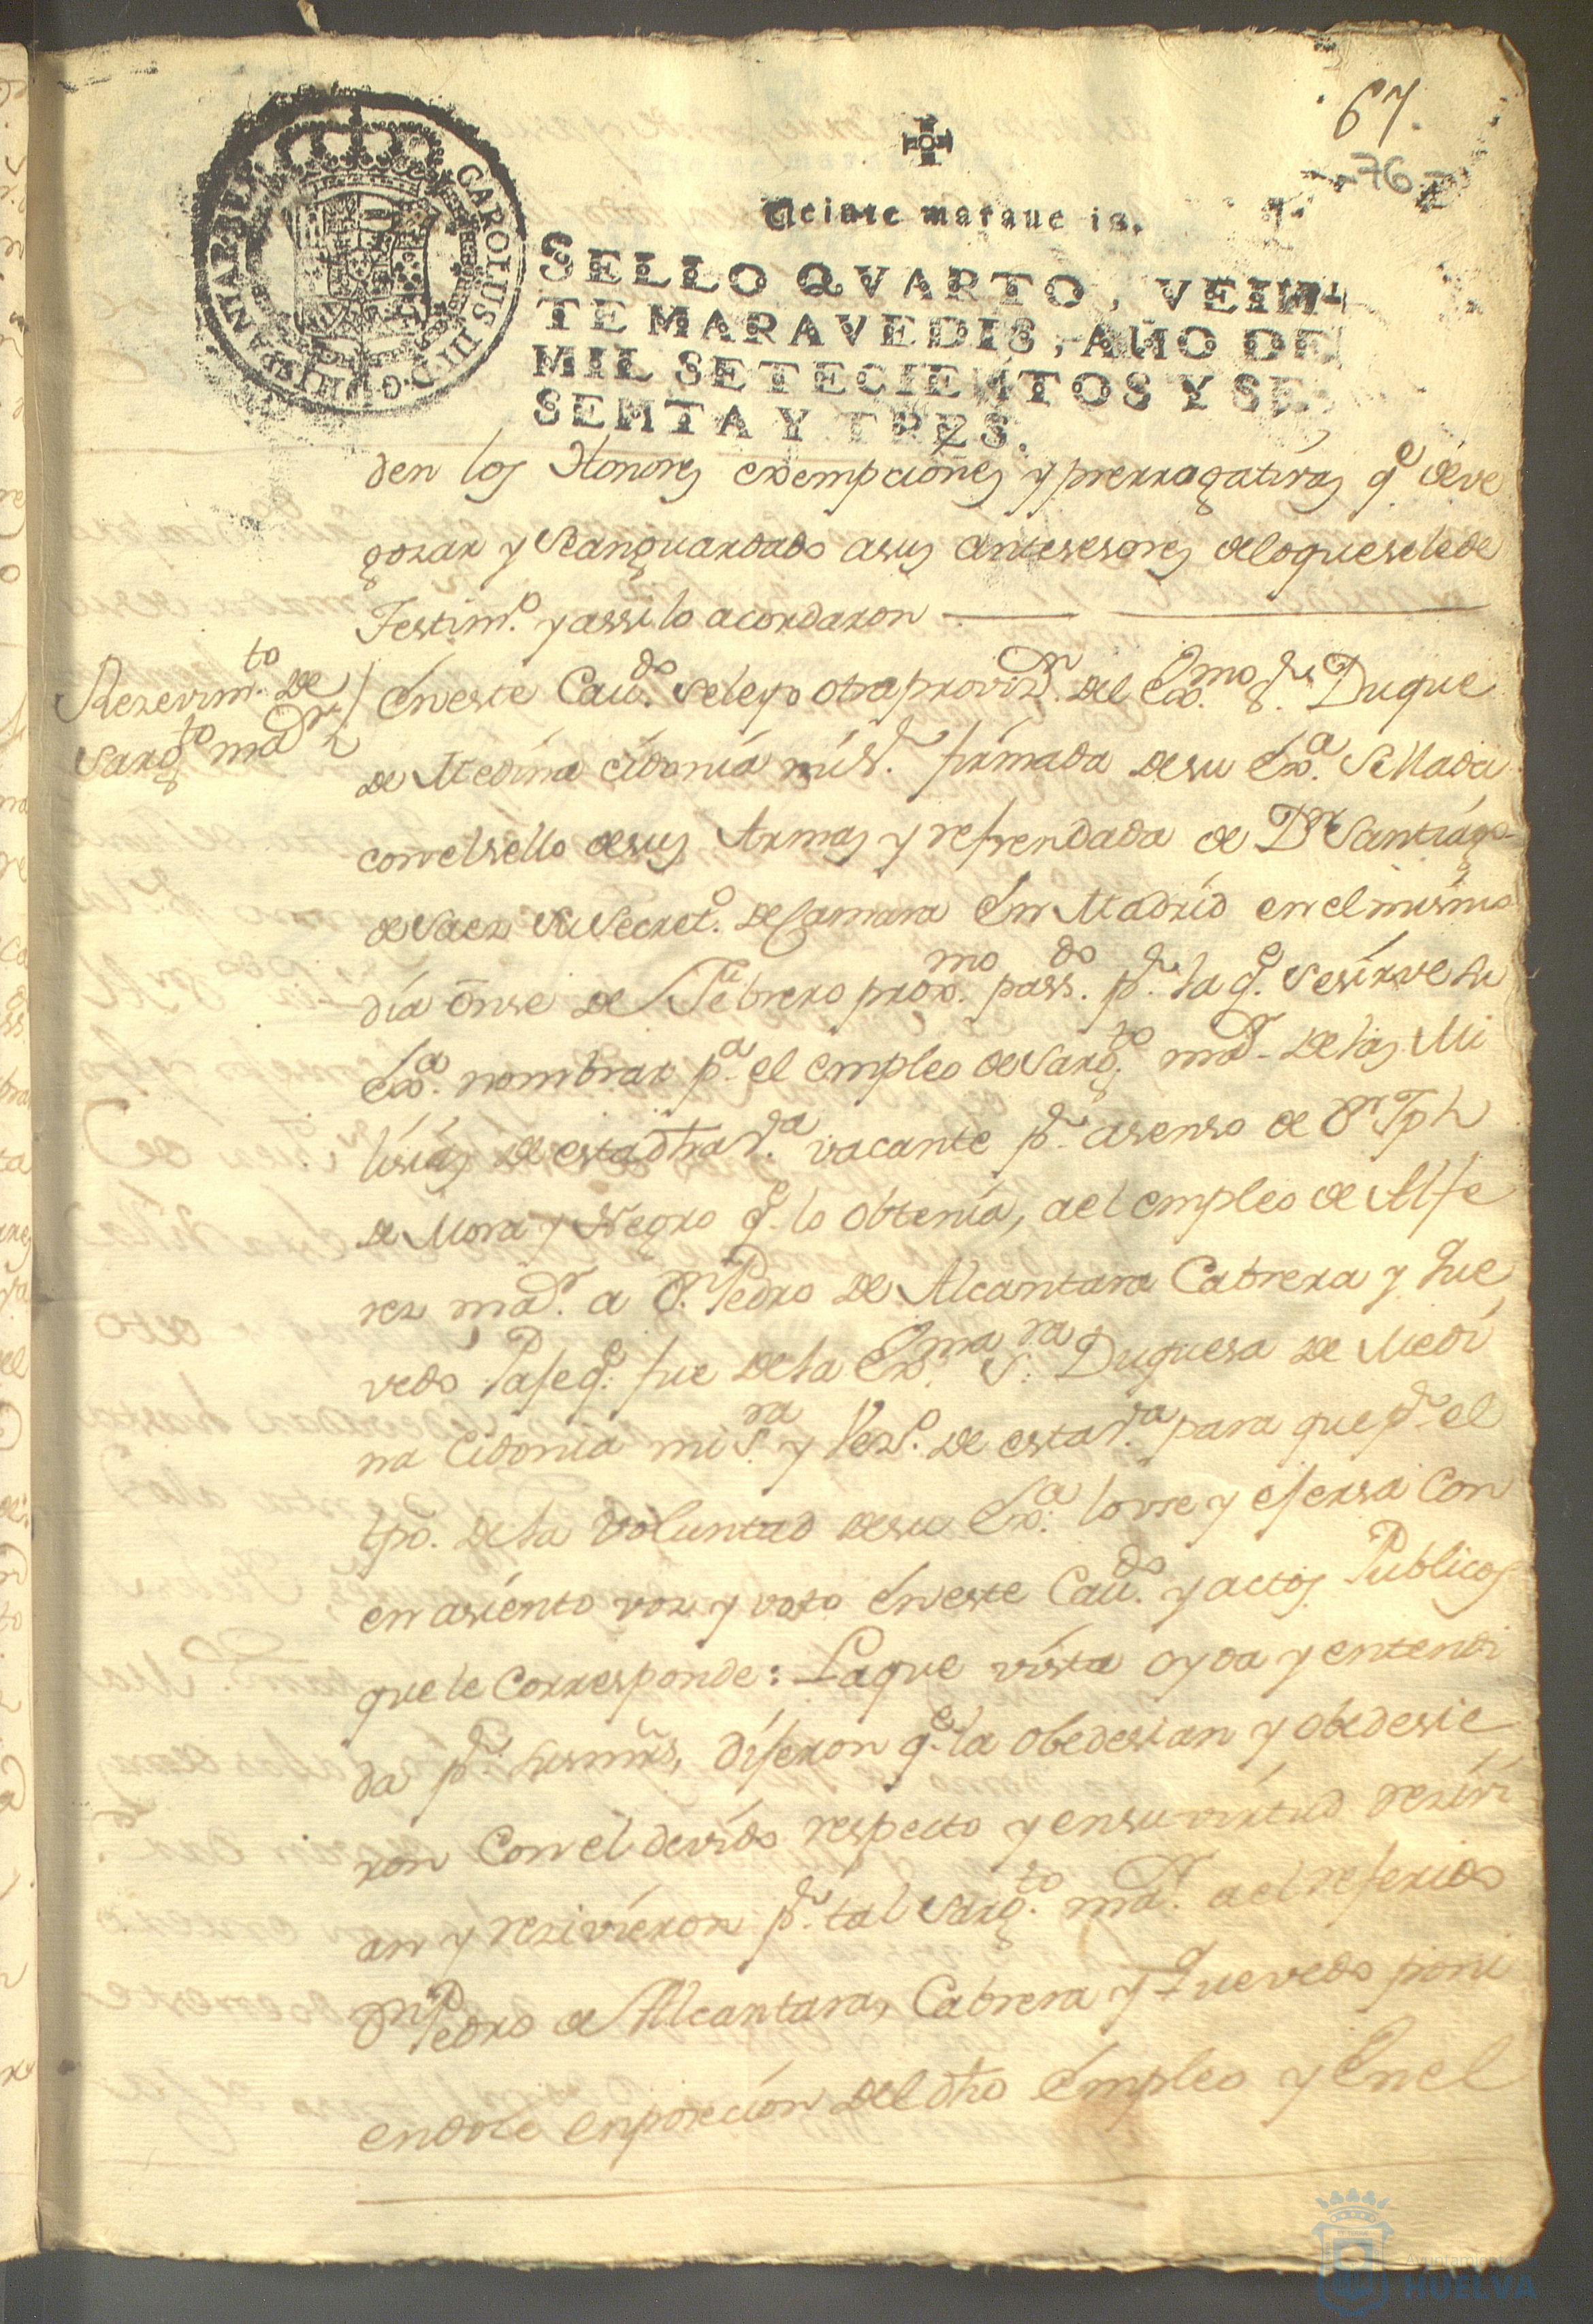 67.
-76-
CAROLUS III. D. G. HISPANIAR. REX
Veinte maraue is.
SELLO QVARTO, VEIN-
TE MARAVEDIS, AÑO DE
MIL SETECIENTOS Y SE-
SENTA Y TRES.
den los Honores exempciones y prerrogativas q.e deve
gozar y Seanguardado asus antesesores deloqueselede
Testim.o y assi lo acordaron
Rezevim.to de
Sarg.to ma.or
En este Cau.do seleyo otra provis.n del Ex.mo S.r Duque
de Medina cidonia mi S.r firmada desu Ex.a Sellada
con elsello desus Armas y refrendada de D.n Santiago
de Saez su Secret.o de Camara En Madrid en el mismo
dia onse de Febrero prox.mo pass.do p.r la q.e Sesirve su
Ex.a nombrar p.a el empleo de Sarg.to ma.r de las Mi
lisias de esta dha V.a vacante p.r asenso de D.n Jph
de Mora y Negro q.e lo obtenia, ael empleo de Alfe
rez ma.r a D.n Pedro de Alcantara Cabrera y Que
vedo Paje q.e fue de la Ex.ma S.ra Duquesa de Medi
na Cidonia mi S.ra y Vez.o de esta V.a para que p.r el
tpo. de la voluntad desu Ex.a lo use y ejersa con
en asiento voz y voto En este Cau.do y actos Publicos
que le corresponde: Laque vista oyda y entendi
da p.r susmrds, dijeron q.e la obedesian y obedesie
ron con el devido respecto y ensu virtud rezivi
an y rezivieron p.r tal Sarg.to ma.r ael referido
D.n Pedro de Alcantara, Cabrera y Quevedo poni
endole enposecion del dho Empleo y En el
Ayuntamiento
HUELVA